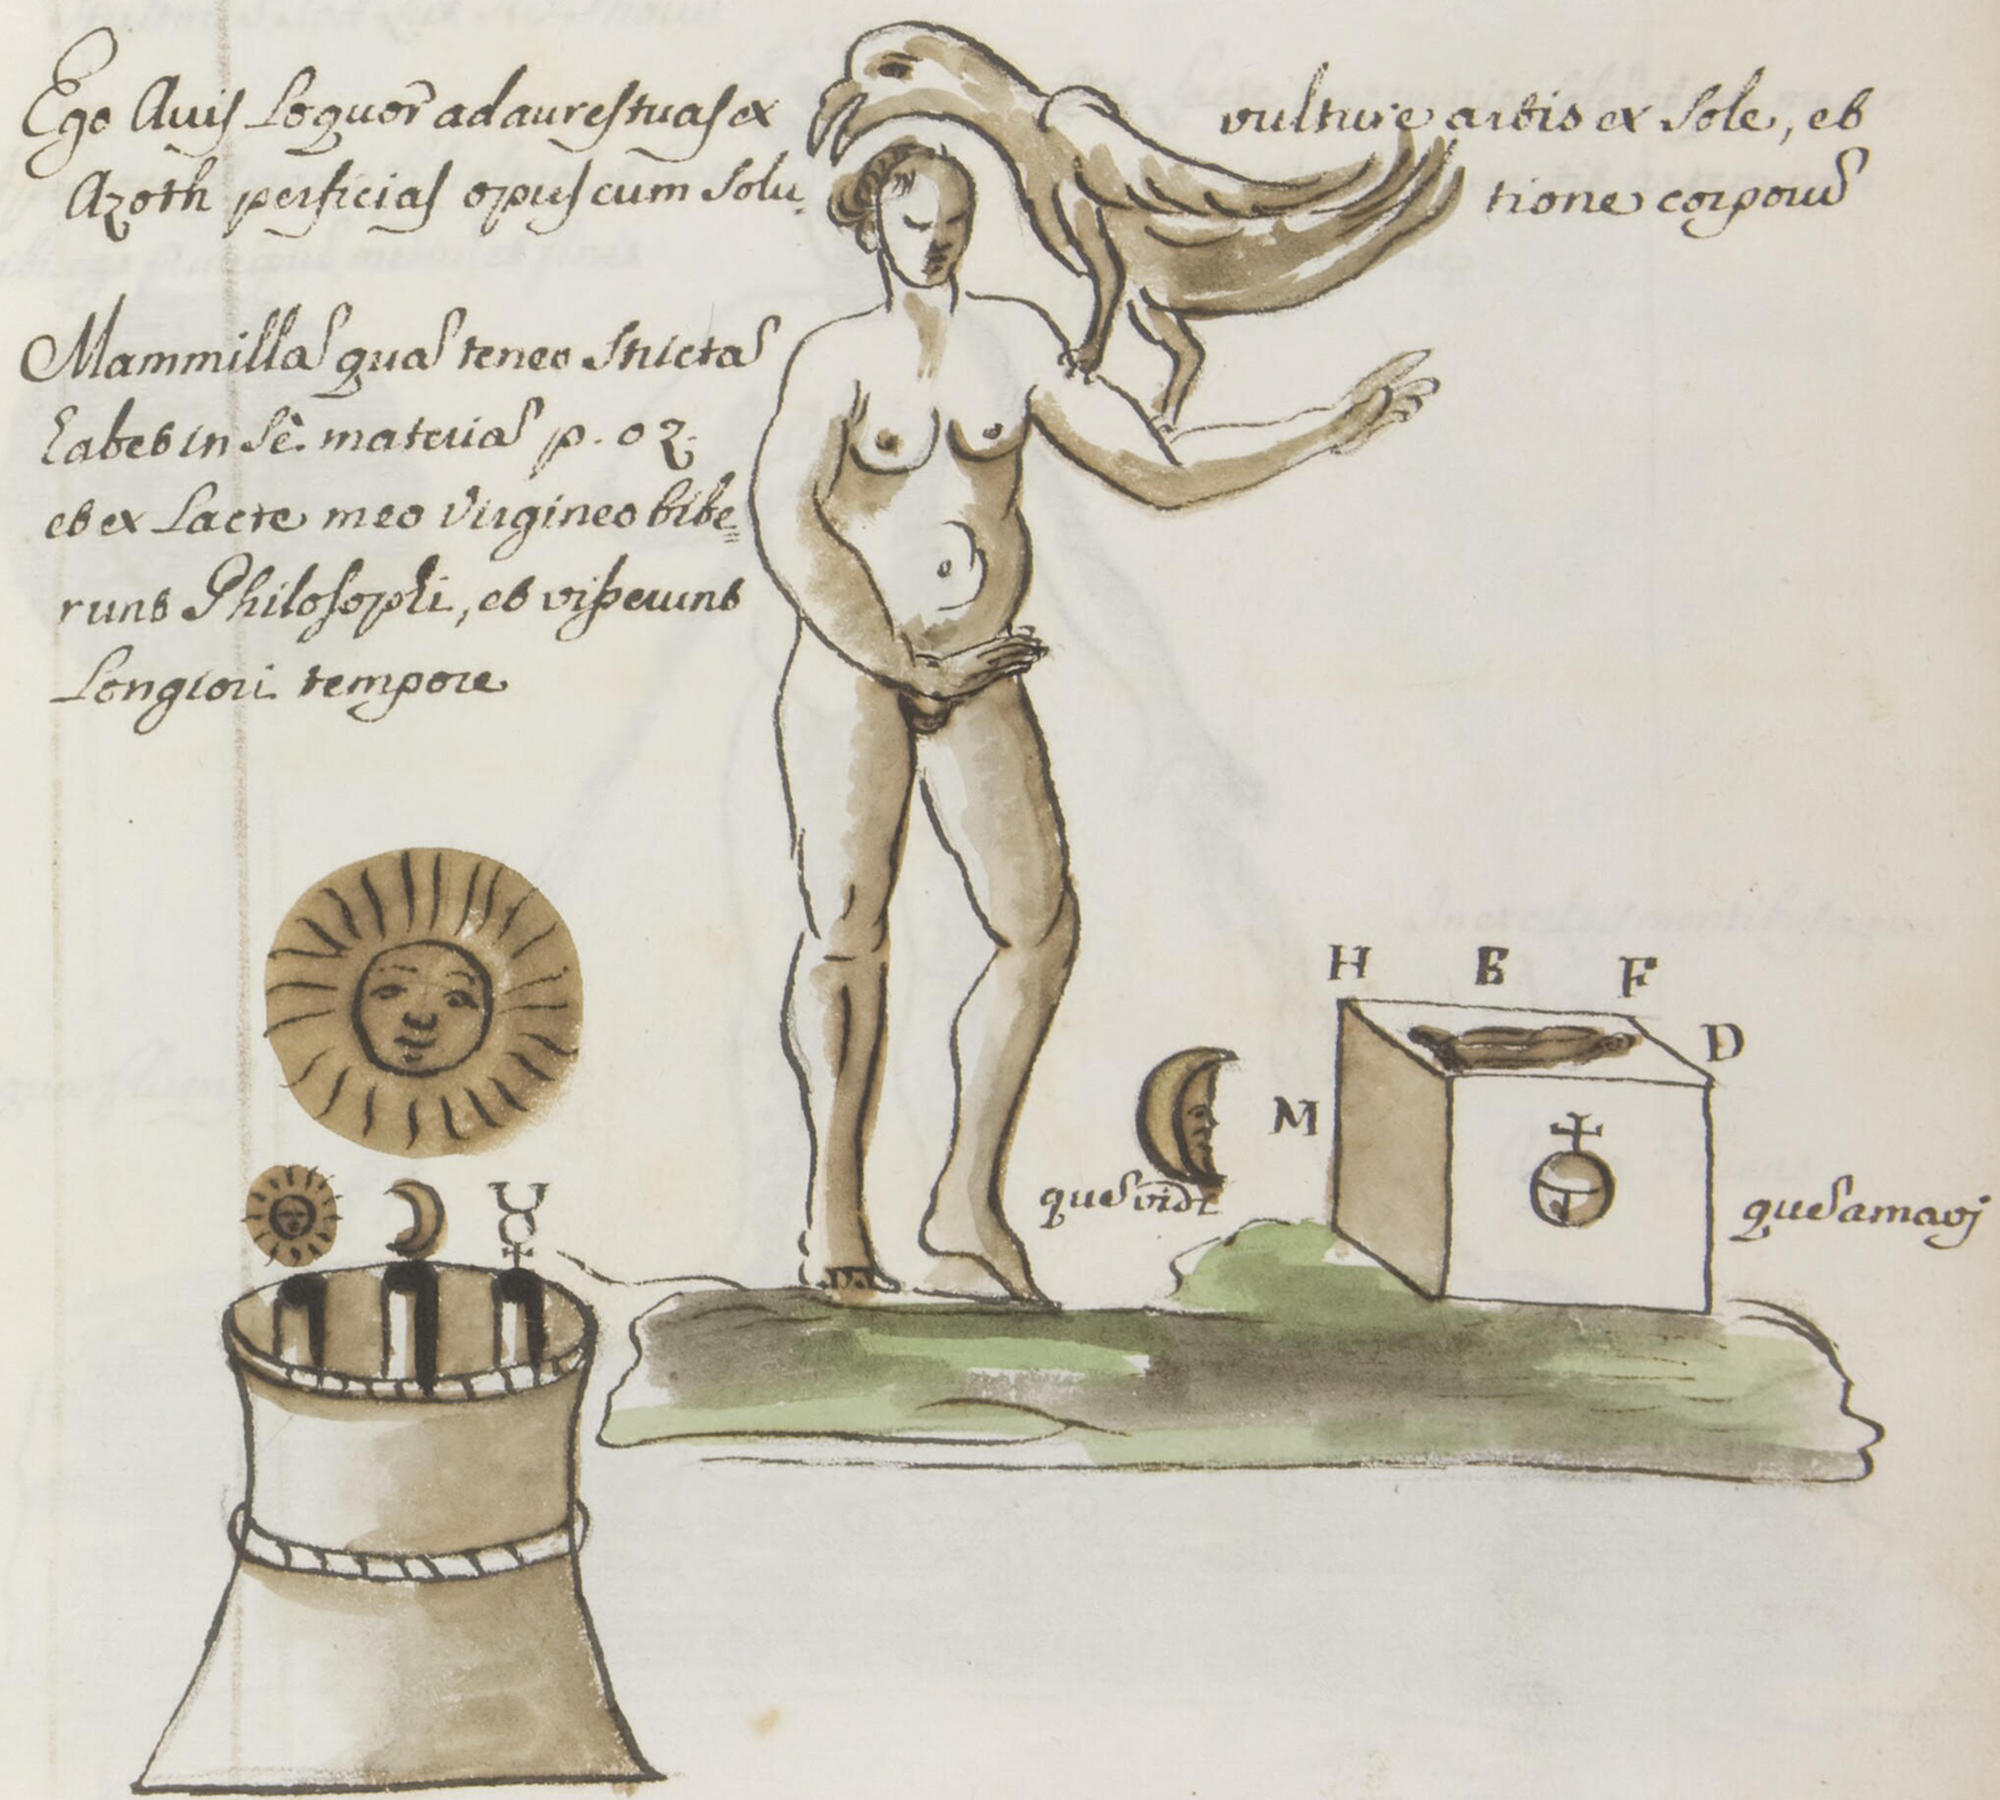 Ego Auis Loquor ad aures tuas ex vulture artis ex Sole, et
Azoth perficias opus cum Solu tione corporis
Mammillas quas teneo Strictas
habet in Se materias p. oz.
et ex Lacte meo Virgineo bibe=
runt Philosophi, et vixerunt
Longiori tempore
H B F
D
M
ques vidi
ques amavj